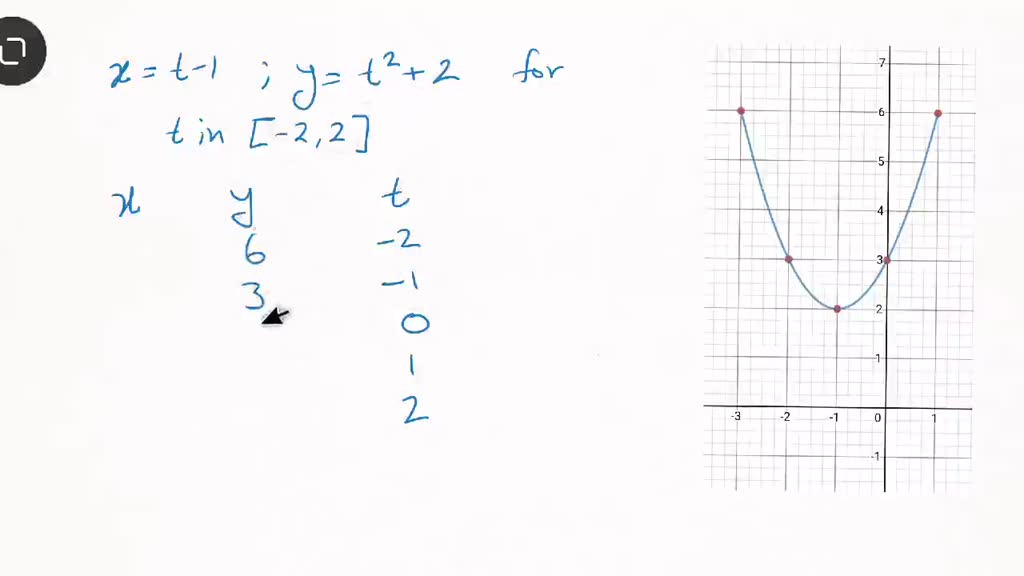 x = t-1 ; y = t² + 2 for
t in [-2, 2]
x y t
6 -2
3 -1
0
1
2
7
6
5
4
3
2
1
-3 -2 -1 0 1
-1